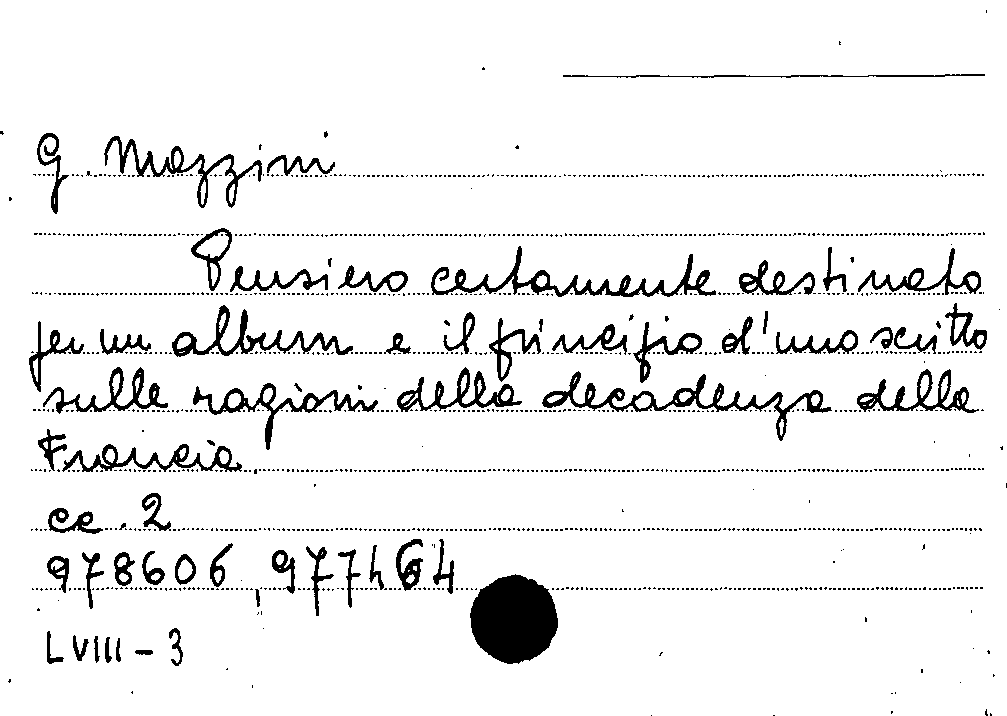 G. Mazzini
Pensiero certamente destinato
per un album e il principio d'uno scritto
sulle ragioni della decadenza della
Francia.
cc. 2
978606, 977464
LVIII - 3